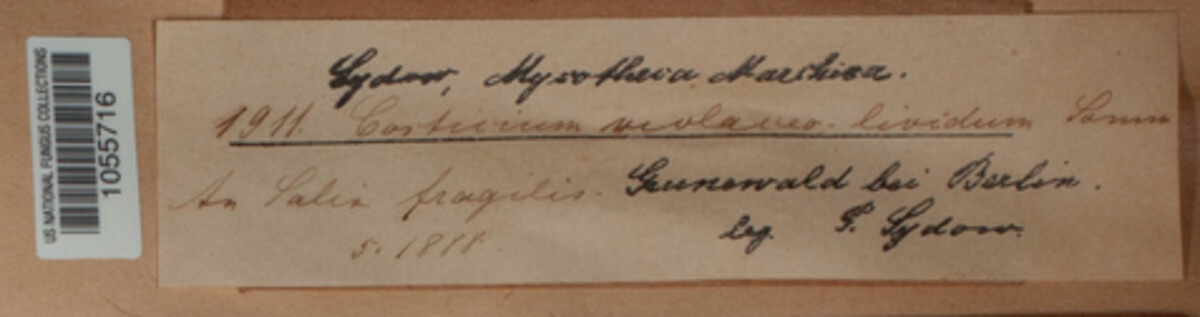 US NATIONAL FUNGUS COLLECTIONS
1055716
Sydow, Mycotheca Marchica.
1911. Corticium violaceo-lividum Somm
An Salix fragilis. Grunewald bei Berlin.
5. 1888. leg. P. Sydow.